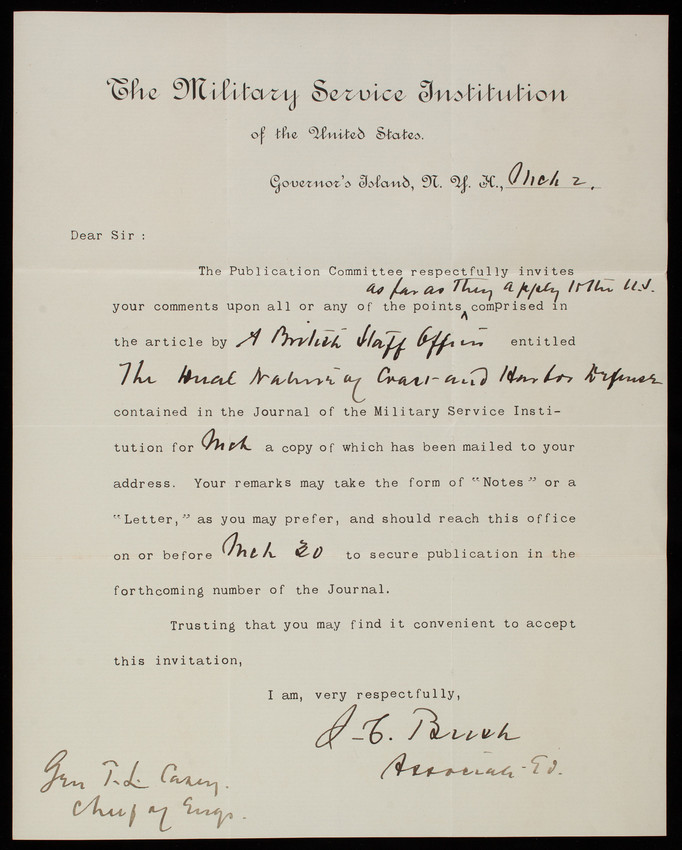 The Military Service Institution
of the United States.
Governor's Island, N. Y. H., Mch 2.
Dear Sir :
The Publication Committee respectfully invites
as far as they apply to the U.S.
your comments upon all or any of the points ^ comprised in
the article by A British Staff Officer entitled
The Dual Nature of Coast and Harbor Defense
contained in the Journal of the Military Service Insti-
tution for Mch a copy of which has been mailed to your
address. Your remarks may take the form of "Notes" or a
"Letter," as you may prefer, and should reach this office
on or before Mch 20 to secure publication in the
forthcoming number of the Journal.
Trusting that you may find it convenient to accept
this invitation,
I am, very respectfully,
J. C. Bush
Associate Ed.
Gen T. L. Casey.
Chief of Engs.